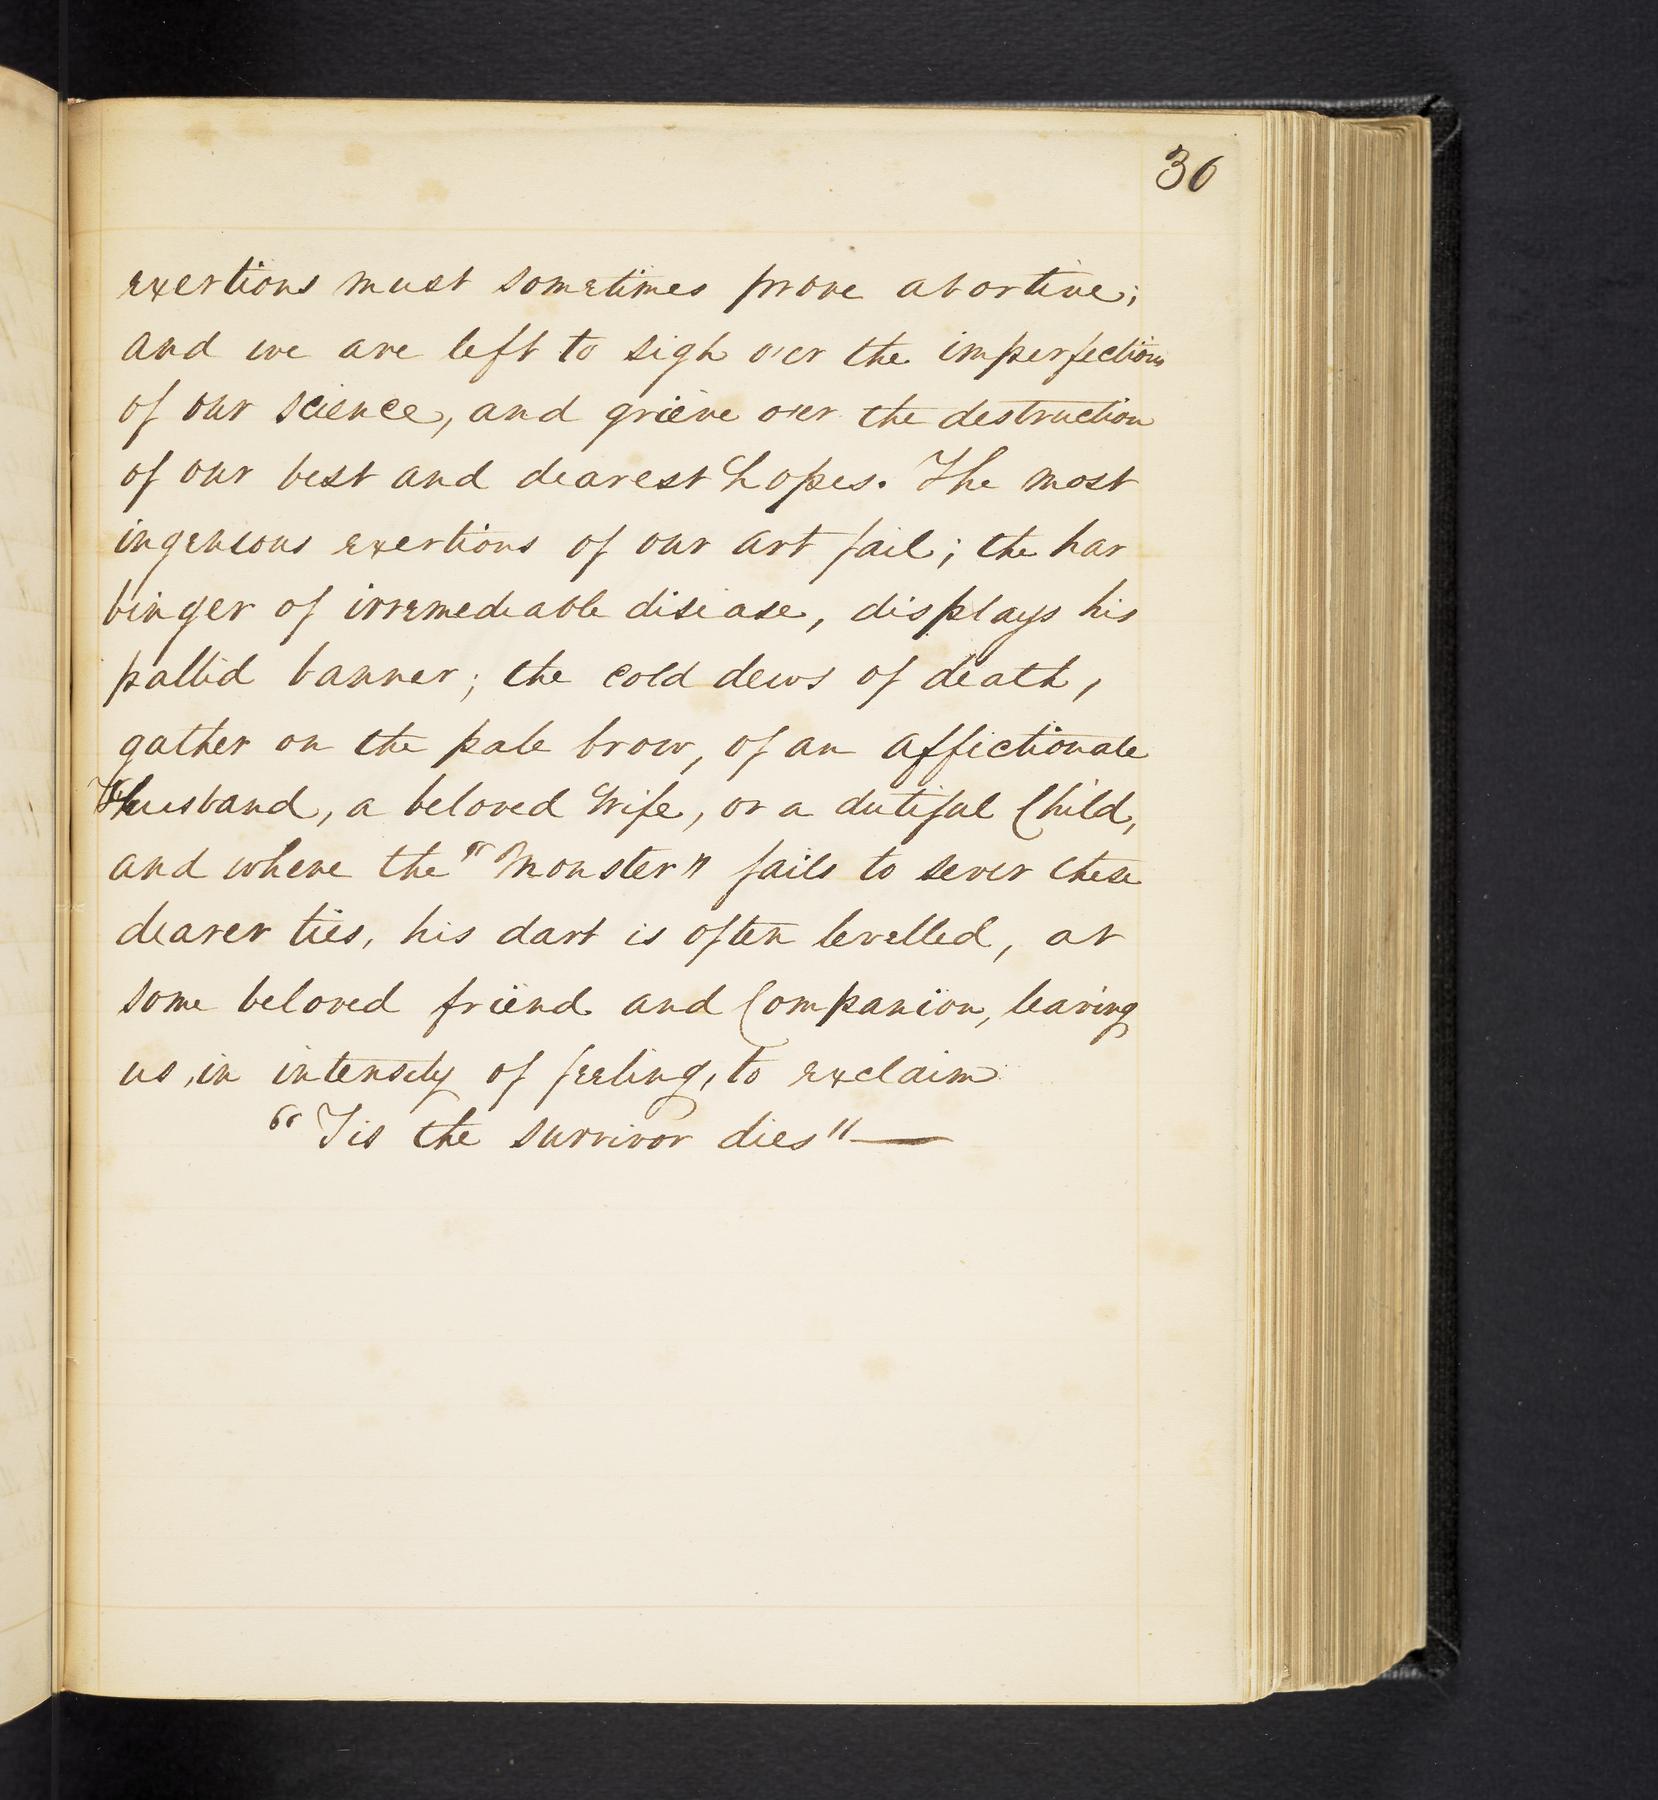 36
exertions must sometimes prove abortive;
and we are left to sigh o'er the imperfections
of our science, and grieve o'er the destruction
of our best and dearest hopes. The most
ingenious exertions of our art fail; the har
binger of irremediable disease, displays his
pallid banner; the cold dews of death,
gather on the pale brow, of an affectionate
Husband, a beloved Wife, or a dutiful Child,
and where the "Monster" fails to sever these
dearer ties, his dart is often levelled, at
some beloved friend and Companion, leaving
us, in intensity of feeling, to exclaim
"Tis the survivor dies"—